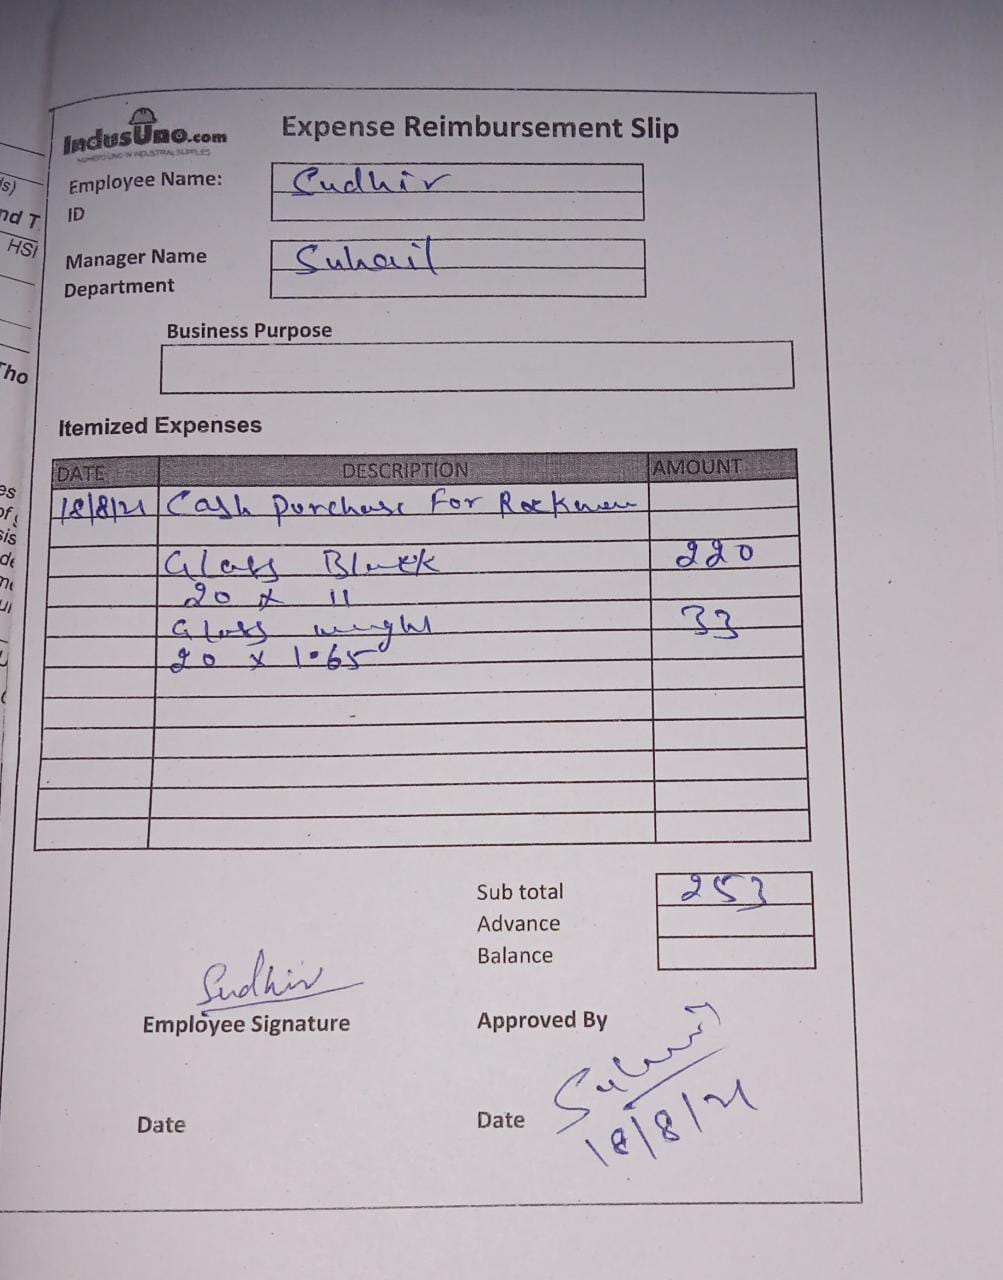 IndusUno.com
NUMERO UNO IN INDUSTRIAL SUPPLIES
Expense Reimbursement Slip
Employee Name: Sudhir
ID
Manager Name Suhail
Department
Business Purpose
Itemized Expenses
DATE DESCRIPTION AMOUNT
18/8/21 Cash Purchase For
Glass Black 220
20 x 11
Glass 33
20 x 1.65
Sub total 253
Advance
Balance
Sudhir
Employee Signature Approved By
Suhail
Date Date 18/8/21
s)
nd T
HSI
Tho
es
of
sis
de